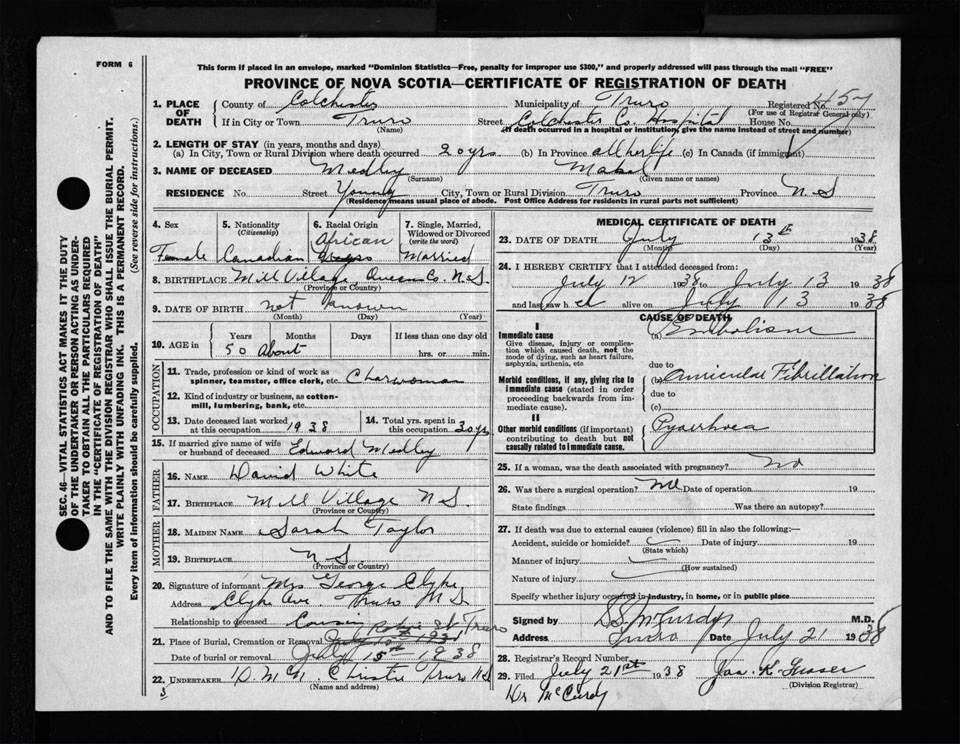 FORM 6
This form if placed in an envelope, marked "Dominion Statistics—Free, penalty for improper use $300," and properly addressed will pass through the mail "FREE"
PROVINCE OF NOVA SCOTIA—CERTIFICATE OF REGISTRATION OF DEATH
1. PLACE OF DEATH County of Colchester Municipality of Truro Registered No. 457
(For use of Registrar General only)
If in City or Town Truro Street Colchester Co. Hospital House No.
(Name) (If death occurred in a hospital or institution, give the name instead of street and number)
2. LENGTH OF STAY (in years, months and days)
(a) In City, Town or Rural Division where death occurred 20 yrs (b) In Province all her life (c) In Canada (if immigrant)
3. NAME OF DECEASED Medley Mabel
(Surname) (Given name or names)
RESIDENCE No. Street Young City, Town or Rural Division Truro Province N S
(Residence means usual place of abode. Post Office Address for residents in rural parts not sufficient)
4. Sex 5. Nationality 6. Racial Origin 7. Single, Married, Widowed or Divorced
(Citizenship) (write the word)
African
Female Canadian Negro Married
8. BIRTHPLACE Mill Village Queens Co. N.S.
(Province or Country)
9. DATE OF BIRTH not known
(Month) (Day) (Year)
10. AGE in Years Months Days If less than one day old
50 About hrs. or min.
OCCUPATION
11. Trade, profession or kind of work as spinner, teamster, office clerk, etc. Charwoman
12. Kind of industry or business, as cotton-mill, lumbering, bank, etc.
13. Date deceased last worked at this occupation 1938 14. Total yrs. spent in this occupation 30 yrs
15. If married give name of wife or husband of deceased Edward Medley
FATHER
16. NAME David White
17. BIRTHPLACE Mill Village N S.
(Province or Country)
MOTHER
18. MAIDEN NAME Sarah Taylor
19. BIRTHPLACE N S
(Province or Country)
20. Signature of informant Mrs. George Clyke
Address Clyke Ave. Truro N S
Relationship to deceased Cousin
21. Place of Burial, Cremation or Removal Robie St Truro
Date of burial or removal July 15th 1938
22. UNDERTAKER Christie Truro N S
(Name and address)
MEDICAL CERTIFICATE OF DEATH
23. DATE OF DEATH July 13th 1938
(Month) (Day) (Year)
24. I HEREBY CERTIFY that I attended deceased from:
July 12 1938 to July 13 1938
and last saw her alive on July 13 1938
CAUSE OF DEATH
I
Immediate cause (a) Embolism
Give disease, injury or complication which caused death, not the mode of dying, such as heart failure, asphyxia, asthenia, etc
due to
Morbid conditions, if any, giving rise to immediate cause (stated in order proceeding backwards from immediate cause).
(b) Auricular Fibrillation
due to
(c)
II
Other morbid conditions (if important) contributing to death but not causally related to immediate cause.
Pyorrhoea
25. If a woman, was the death associated with pregnancy? No
26. Was there a surgical operation? No Date of operation 19
State findings Was there an autopsy?
27. If death was due to external causes (violence) fill in also the following:—
Accident, suicide or homicide? Date of injury 19
(State which)
Manner of injury
(How sustained)
Nature of injury
Specify whether injury occurred in industry, in home, or in public place
Signed by D.S. McCurdy M.D.
Address Truro Date July 21 1938
28. Registrar's Record Number
29. Filed July 21st 1938 Jas. K. Fraser
(Division Registrar)
Dr McCurdy
SEC. 46—VITAL STATISTICS ACT MAKES IT THE DUTY
OF THE UNDERTAKER OR PERSON ACTING AS UNDER-
TAKER TO OBTAIN ALL THE PARTICULARS REQUIRED
IN THE "CERTIFICATE OF REGISTRATION OF DEATH"
AND TO FILE THE SAME WITH THE DIVISION REGISTRAR WHO SHALL ISSUE THE BURIAL PERMIT.
WRITE PLAINLY WITH UNFADING INK. THIS IS A PERMANENT RECORD.
Every item of information should be carefully supplied. (See reverse side for instructions.)